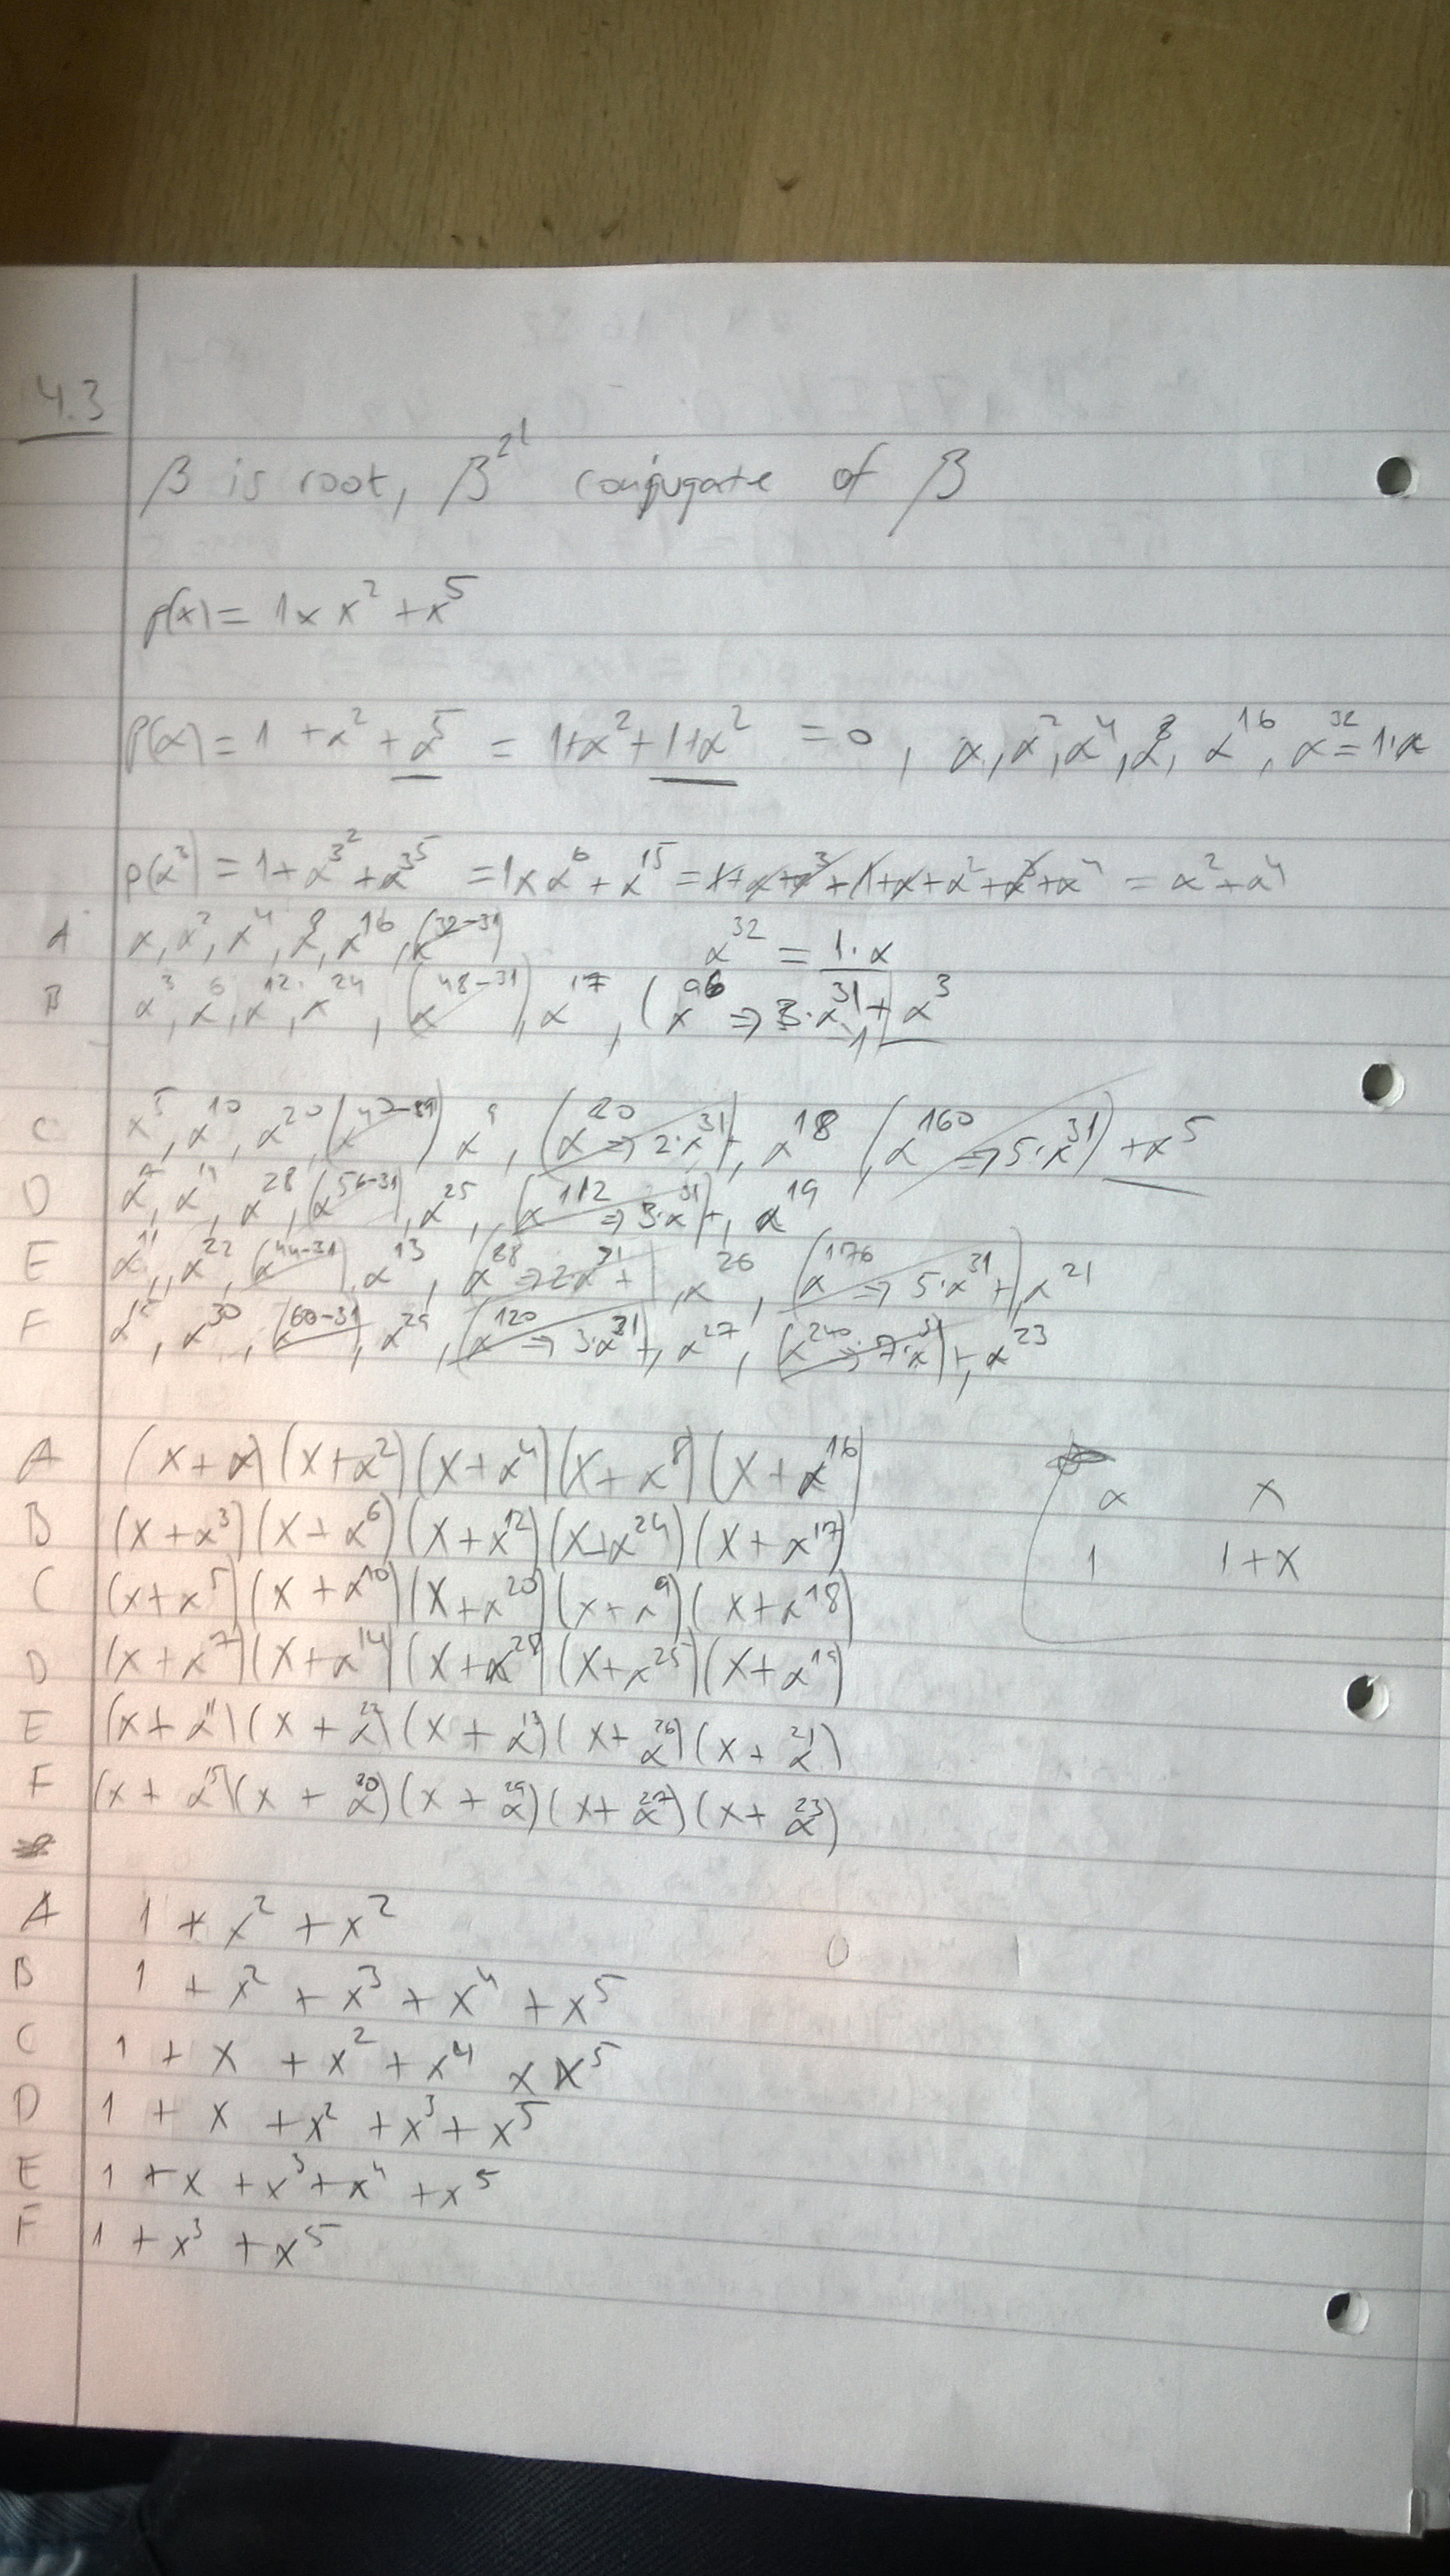 4.3
β is root, β^2^l conjugate of β
p(x) = 1 x x^2 + x^5
p(α) = 1 + α^2 + α^5 = 1+α^2+1+α^2 = 0, α, α^2, α^4, α^8, α^16, α^32 = 1·α
p(α^3) = 1 + α^3^2 + α^3^5 = 1 x α^6 + α^15 = 1+α+α^3+1+α+α^2+α^3+α^4 = α^2+α^4
A α, α^2, α^4, α^8, α^16, (α^32-31) α^32 = 1·α
B α^3, α^6, α^12, α^24, (α^48-31), α^17, (α^96 => 3·α^31 + α^3
1
C α^5, α^10, α^20, (α^ ) α^9, (α^ => 2·α^31)+, α^18, (α^160 => 5·α^31) + α^5
D α^7, α^14, α^28, (α^56-31), α^25, (α^112 => 3·α^31)+, α^19
E α^11, α^22, (α^44-31), α^13, (α^88 => 2·α^31+), α^26, (α^176 => 5·α^31+), α^21
F α^15, α^30, (α^60-31), α^29, (α^120 => 3·α^31)+, α^27, (α^240 => 7·α^31)+, α^23
A (X+α)(X+α^2)(X+α^4)(X+α^8)(X+α^16)
α X
B (X+α^3)(X+α^6)(X+α^12)(X+α^24)(X+α^17)
1 1+X
C (X+α^5)(X+α^10)(X+α^20)(X+α^9)(X+α^18)
D (X+α^7)(X+α^14)(X+α^28)(X+α^25)(X+α^19)
E (X+α^11)(X+α^22)(X+α^13)(X+α^26)(X+α^21)
F (X+α^15)(X+α^30)(X+α^29)(X+α^27)(X+α^23)
A 1 + x^2 + x^2
B 1 + x^2 + x^3 + x^4 + x^5
C 1 + x + x^2 + x^4 x x^5
D 1 + x + x^2 + x^3 + x^5
E 1 + x + x^3 + x^4 + x^5
F 1 + x^3 + x^5